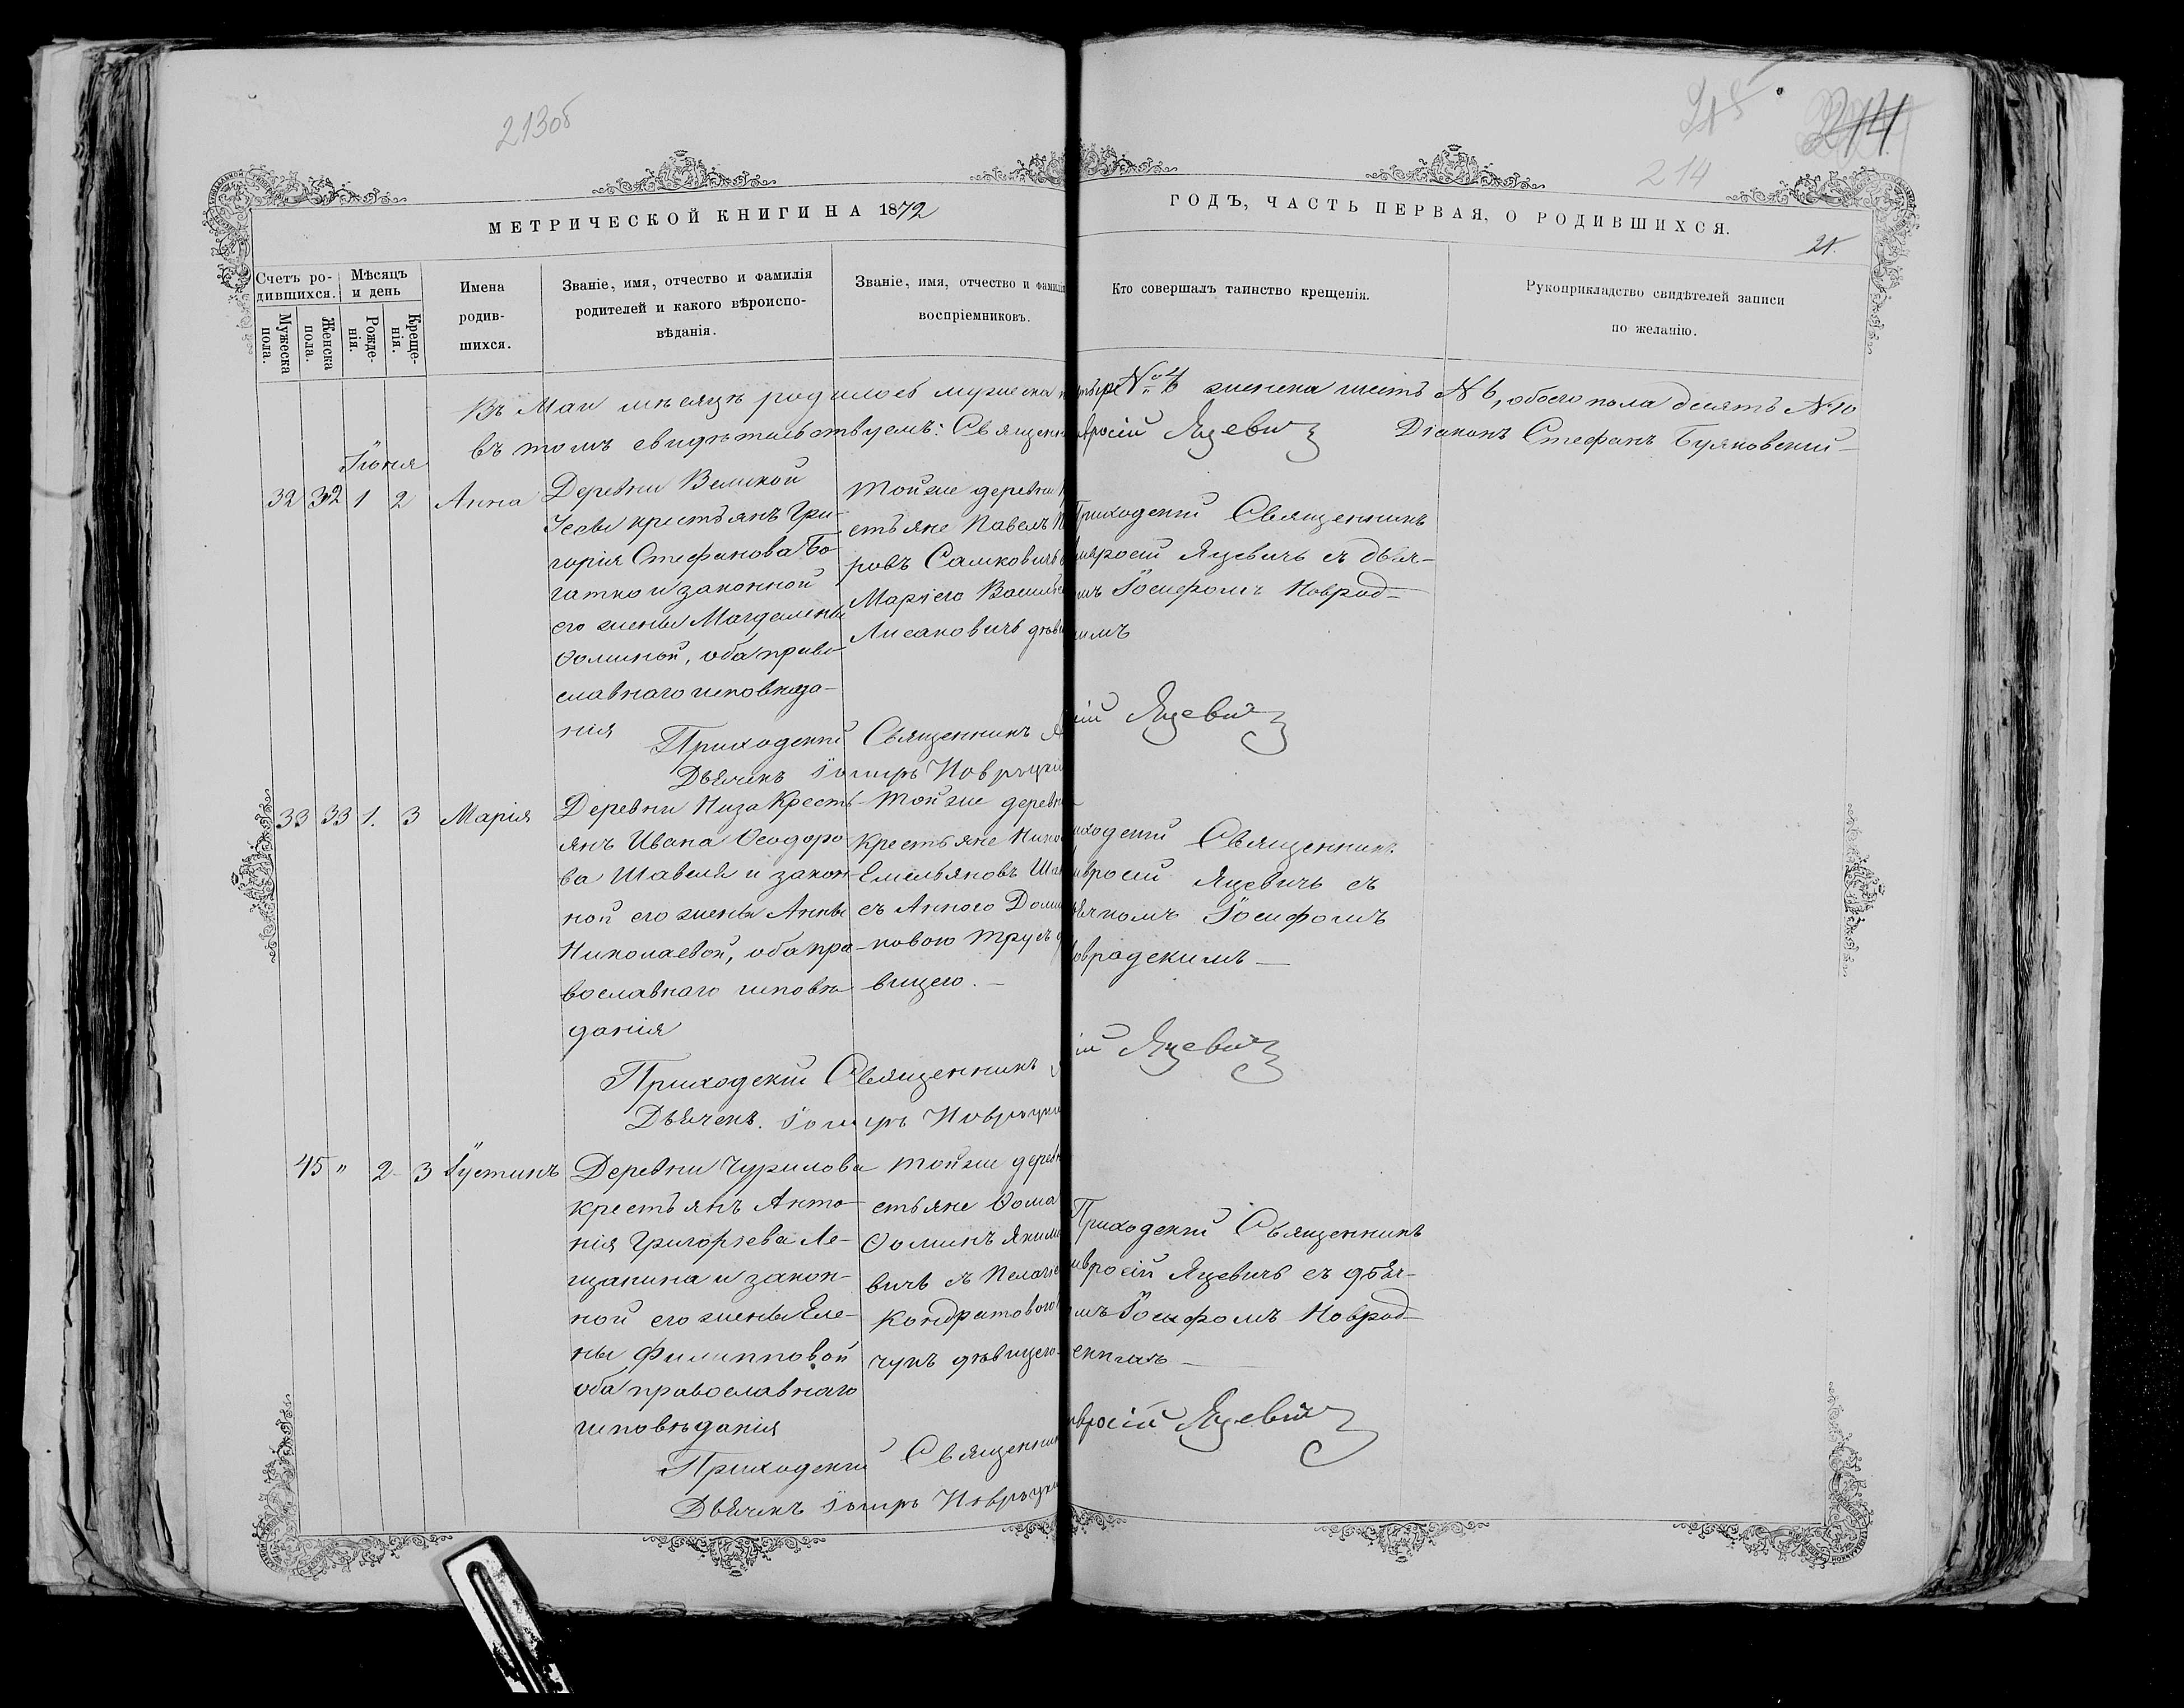 213об
214
214
МЕТРИЧЕСКОЙ КНИГИ НА 1872
ГОДЪ, ЧАСТЬ ПЕРВАЯ, О РОДИВШИХСЯ.
21.
Счетъ ро-
дившихся.
Мужеска
пола.
Женска
пола.
Мѣсяцъ
и день
Рожде-
нія.
Креще-
нія.
Имена
родив-
шихся.
Званіе, имя, отчество и фамилія
родителей и какого вѣроиспо-
вѣданія.
Званіе, имя, отчество и фамилія
воспріемниковъ.
Кто совершалъ таинство крещенія.
Рукоприкладство свидѣтелей записи
по желанію.
Въ Маи мѣсяцѣ родилось мужеска № 4 женска шесть № 6, обоего пола десять № 10
въ томъ свидѣтельствуемъ: Священн вросій Яцевич Діаконъ Стефанъ
Іюня
32 32 1 2 Анна
Деревни Великой
крестьянъ Гри-
горія Стефанова Бо-
гатко и законной
его жены Магдалены
Ѳоминой, оба право-
славнаго исповѣда-
нія
Той же деревни
стьяне Павелъ
ровъ Самковичъ
Маріею Василь
Лисаковичъ дѣви
Приходскій Священникъ
мвросій Яцевичъ съ дьяч-
мъ Іосифомъ Новрад-
кимъ
Приходскій Священникъ А
ій Яцевич
Дьячекъ Іосифъ
33 33 1. 3 Марія
Деревни Низа Кресть-
янъ Ивана Ѳеодоро-
ва Шавеля и закон-
ной его жены Анны
Николаевой, оба пра-
вославнаго исповѣ-
данія
Той же деревн
крестьяне Нико
Емельяновъ Ша
съ Анною Доми
новою Трусъ д
вицею. —
иходскій Священникъ
мвросій Яцевичъ съ
ьячкомъ Іосифомъ
оврадскимъ —
Приходскій Священникъ
ій Яцевич
Дьячекъ. Іосифъ
45 " 2 3 Іустинъ
Деревни Чурилова
крестьянъ Анто-
нія Григорьева Ле-
щанина и закон-
ной его жены Еле-
ны Филипповой
оба православнаго
исповѣданія
Той же дерев
стьяне Ѳома
Ѳоминъ Якимо
вичъ съ Пелагіе
Кондратовою
чукъ дѣвицею
Приходскій Священникъ
мвросій Яцевичъ съ дьяч-
омъ ІосифомъНоврад-
скимъ —
Приходскій Священник
мвросій Яцевич
Дьячекъ Іосифъ